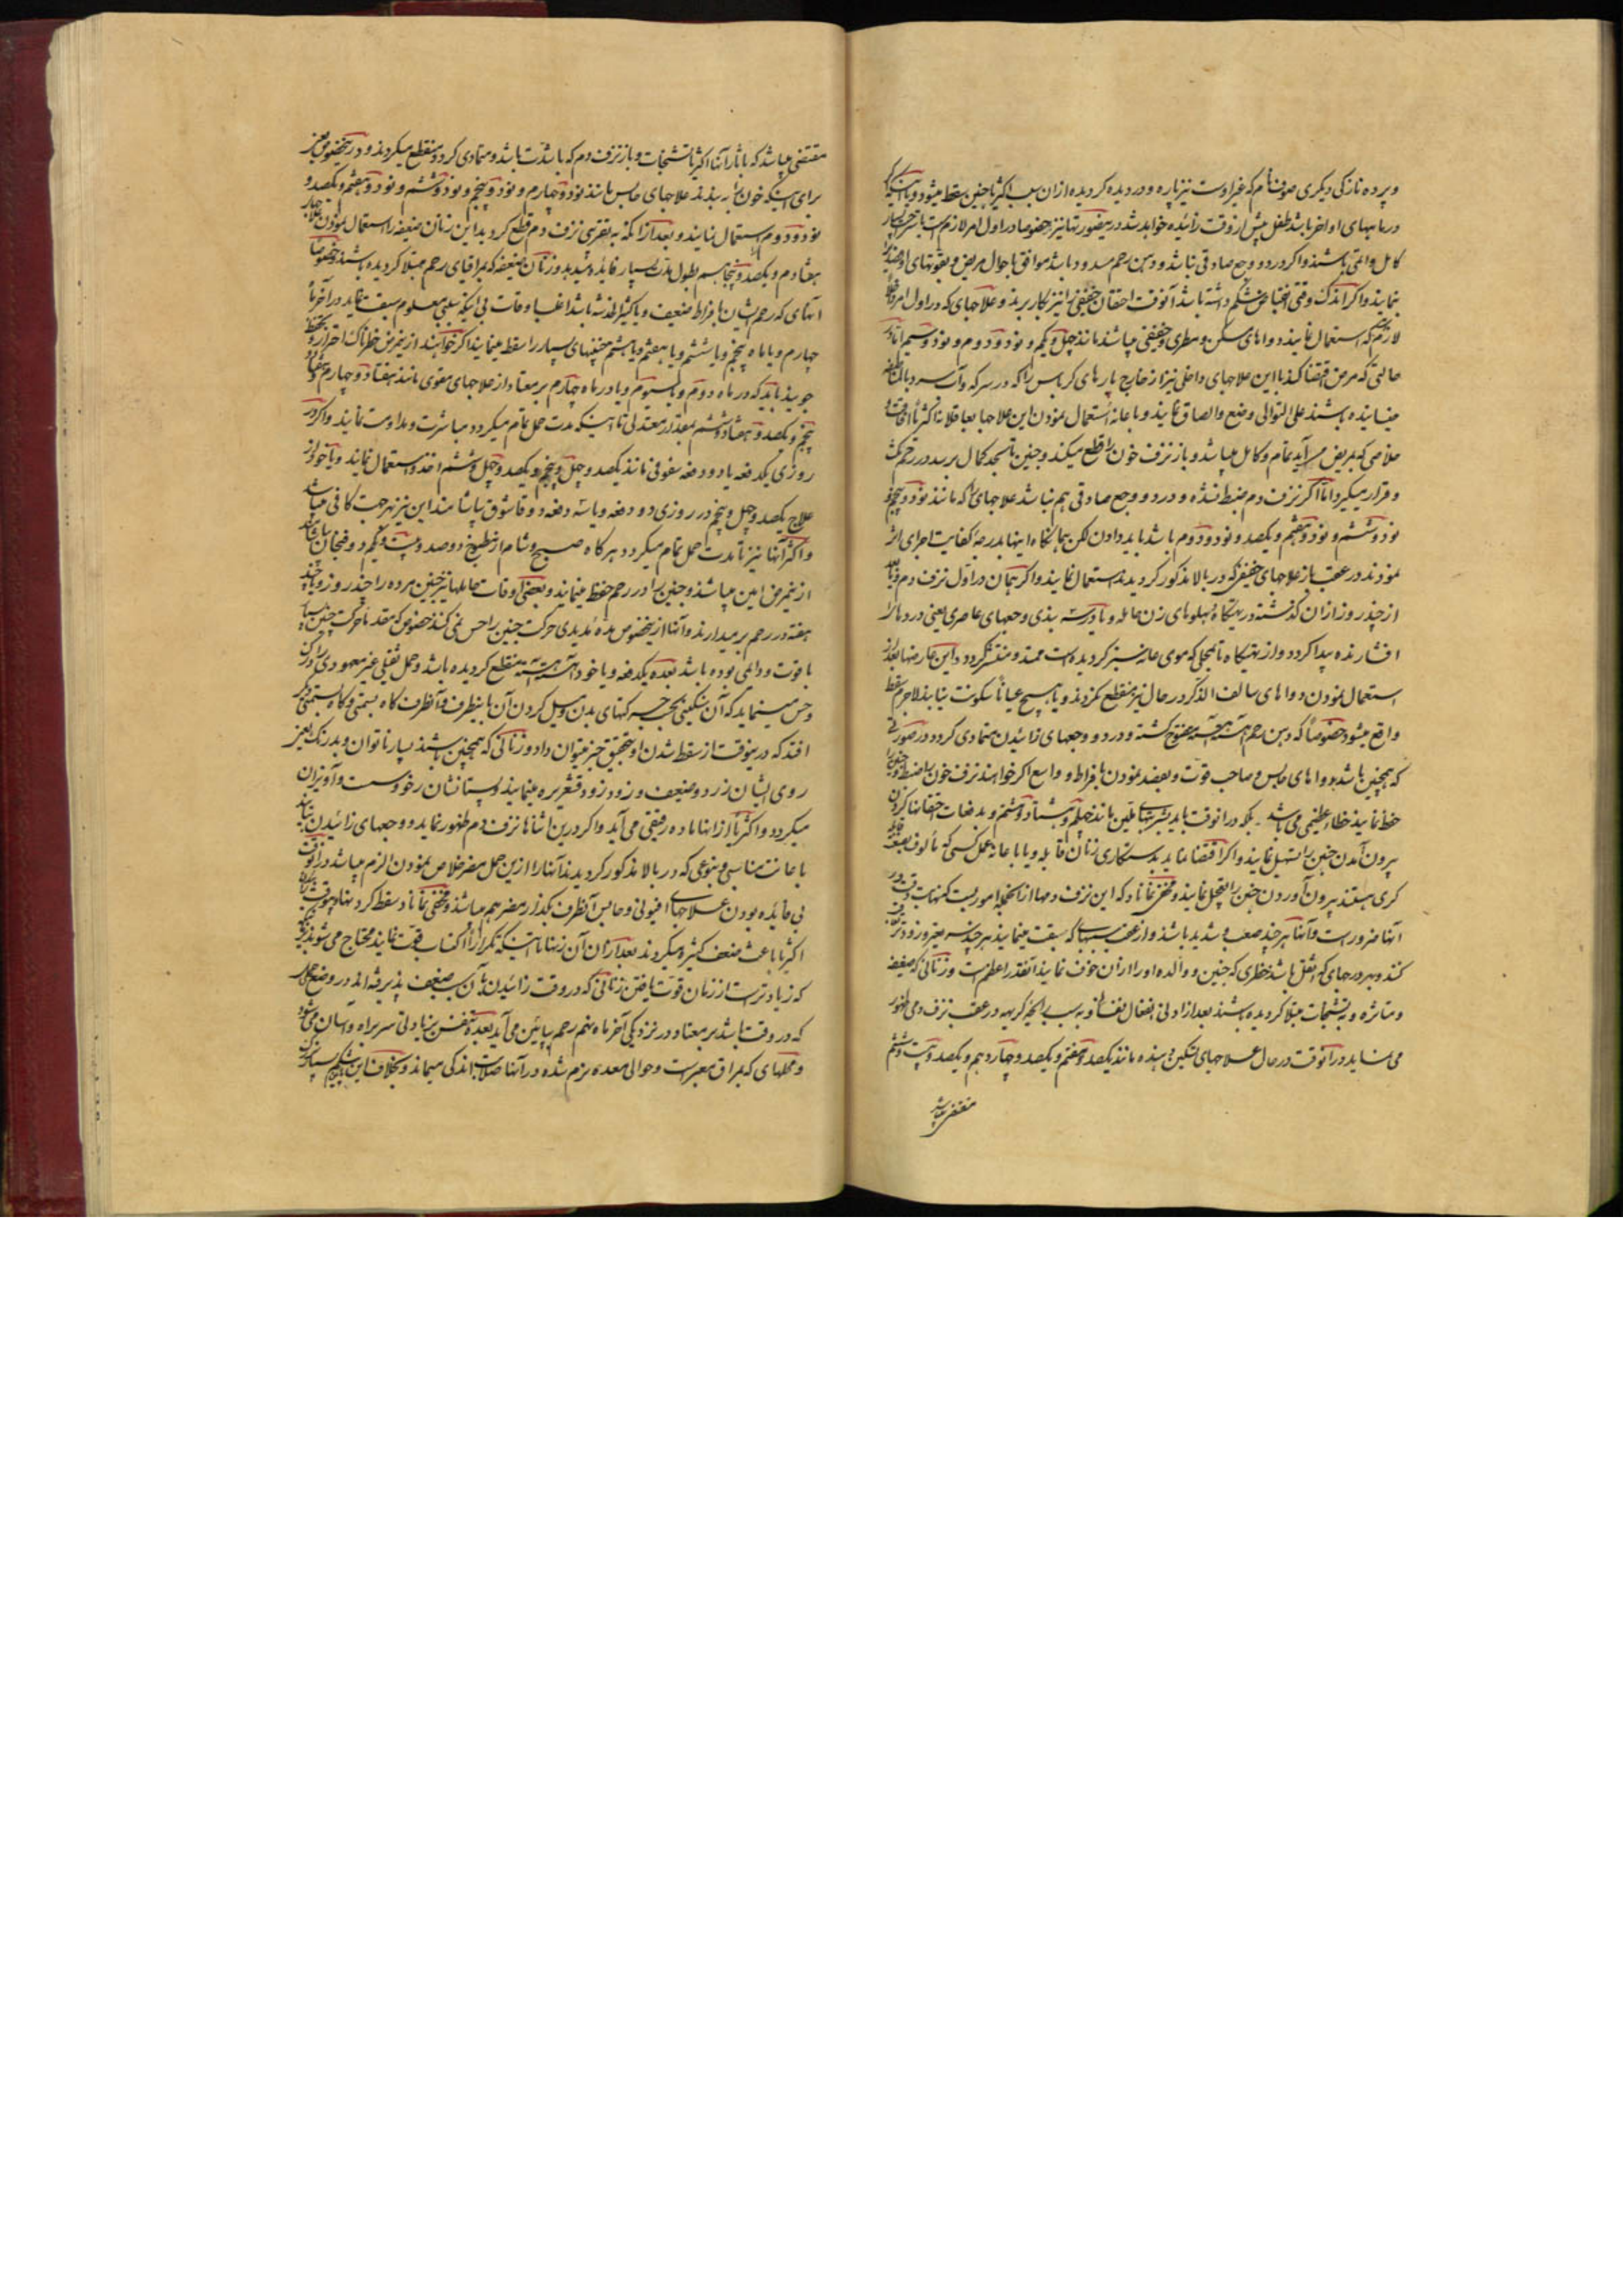 و پرده نازکی دیگری صوننام که غیر اوست نیز پاره و دردیده کردیده ازان سبب اکثریا جنین سقط میشود و یا اینکه
در ماههای اواخر باشد طفل پیش از وقت زائیده خواهد شد در اینصورتها نیز خصوصا در اول امر لازم است با ترحت بسیار
کامل و دائمی باشند و اگر درد و وجع صادقی نباشد و دهن رحم مسدود باشد موافق با حوال مریض و بقوتهای او فصد
نمایند و اگر اندک وقتی انقباض شکم داشته باشد آنوقت احقان خفیفی را نیز بکار برند و علاجهای که در اول امر
لازم که استعمال نمایند دواهای مسکن و مطری و خفیفی میباشد مانند چهل و یکم و نود و دوم و نود و سیم اما در
حالتی که مرض اقتضا کند با این علاجهای داخلی نیز از خارج پارهای کرباس را که در سرکه و آب سرد
خیسانیده باشند علی التوالی وضع و الصاق نمایند و با عانه استعمال نمودن این علاجها بعاقلانه اکثریا افاقت و
خلاصی که بمریض میآید تمام و کامل میباشد و باز نزف خون را قطع میکند و جنین تا بحد کمال برسد در رحم مکث
و قرار میگیرد اما اگر نزف دم ضبط نشده و درد و وجع صادقی هم نباشد علاجهای را که مانند نود و پنجم و
نود و ششم و نود و هفتم و یکصد و نود و دوم باشد باید دادن لکن هنگامیکه اینها بدرجه کفایت اجرای اثر
نمودند در عقب باز علاجهای خفیفی که در بالا مذکور کردیدند استعمال نمایند و اگر همان در اول نزف دم و یا بعد
از چند روز ازان گذشته در تهیگاه و پهلوهای زن حامله و یا درشت بندی وجعهای عاصری یعنی دردهای
افشارنده پیدا کردد و از تهیگاه تا محلی که موی عانه سبز کردیده است ممتد و منتشر گردد و این عارضها بعد از
استعمال نمودن دواهای سالف الذکر در حال نیز منقطع نگردند و یا هیچ عیاناً سکونت نیابند لاجرم سقط
واقع میشود خصوصاً که دهن رحم آهسته آهسته مفتوح گشته و درد و وجعهای زائیدن متمادی گردد در صورتی
که همچنین باشد دواهای حابس و صاحب قوت و بفصد نمودن بافراط و واسع اگر خواهند نزف خون را ضبط و جنین را
حفظ نمایند خطاء عظیمی میباشد بلکه درانوقت باید بشربتهای ملین مانند چهلم و هشتاد و ششم و بدفعات احتقانها کردن
بیرون آمدن جنین را تسهیل نمایند و اگر اقتضا نماید بدستکاری زنان قابله و یا باعانه عمل کسی که مألوف بصنعت
گری هستند بیرون آوردن جنین را تعجیل نمایند و مخفی نماناد که این نزف دمها از انجمله امور یست که نهایت دقت در
آنها ضرور است و آنها هر چند صعب و شدید باشند و از عقب سببهای که سبقت مینمایند هر چند
کند و بهر درجهای که اثقل باشد خطری که جنین و والده او را ازان خوف نمایند آنقدر اعظم است و زنانی که ضعیفه
و متاثره و به تشنجات مبتلا گردیده باشند بعد از ادنی انفعال نفسانی و به سبب رایحه کریهه در عقب نزف دمی ظهور
می نماید در آنوقت در حال علاجهای تسکین دهنده مانند یکصد و هفتم و یکصد و چهاردهم و یکصد و بیست و ششم
مقتضی میباشد
مقتضی میباشد که با ثار آنها اکثریا تشنجات و باز نزف دم که با شدت باشد و متمادی گردد منقطع میگردند و در اینخصوص نیز
برای اینکه خون را به بندند علاجهای حابس مانند نود و چهارم و نود و پنجم و نود و ششم و نود و هفتم و یکصد و
نود و دوم استعمال نمایند و بعد از انکه به تقریبی نزف دم قطع گردید این زنان ضعیفه را استعمال نمودن علاج
هفتادم و یکصد و پنجاهم بطول مدت بسیار فایده میدهد و زنان ضعیفه که بمراقیای رحم مبتلا گردیده باشند و خصوصا
آنهای که رحم ایشان بافراط ضعیف و یا کثیرالحسه باشد اغلب اوقات بی اینکه سببی معلوم سبقت نماید در آخر ماه
چهارم و یا ماه پنجم و یا ششم و یا هفتم و یا هشتم جنینهای بسیار را سقط مینمایند اگر خواهند از این مرض خطرناک احتراز و تحفظ
جویند باید که در ماه دوم و یا سیوم و یا در ماه چهارم بر معتاد از علاجهای مقوی مانند هفتاد و چهارم و هفتاد و
پنجم و یکصد و هفتاد و ششم بمقدار معتدلی تا اینکه مدت حمل تمام میگردد مباشرت و مداومت نمایند و اگر در
روزی یکدفعه یا دو دفعه سفوفی مانند یکصد و چهل و پنجم و یکصد و چهل و ششم اخذ و استعمال نمایند و یا خود از
علاج یکصد و چهل و پنجم در روزی دو دفعه و یا سه دفعه دو قاشوق بیاشامند این نیز بهر جهت کافی میباشد
و اکثر آنها نیز تا مدت حمل تمام میگردد هر گاه صبح و شام از مطبوخ دوصد و بیست و یکم دو فنجان بیاشامند
از این مرض امین میباشند و جنین را در رحم حفظ مینمایند و بعضی اوقات حاملها نیز جنین مرده را چند روز و یا چند
هفته در رحم بر میدارند و آنها از اینخصوص مدة مدیدی حرکت جنین را حس نمی کنند خصوص که مقدما حرکت جنین بسیار
با قوت و دائمی بوده باشد بعده یکدفعه و یا خود آهسته آهسته منقطع گردیده باشد و حمل ثقیلی غیر معهودی را درک
و حس مینماید که آن سنگینی بحسب حرکتهای بدن و میل کردن آن باینطرف و آنطرف گاه بسمتی و گاه بسمتی دیگر
افتد که در اینوقت از سقط شدن او بتحقیق خبر میتوان داد و زنانی که همچنین باشند بسیار ناتوان و بدرنگ و نیز
روی ایشان زرد و ضعیف و زود زود قشعریره مینمایند و پستانشان رخو و سست و آویزان
میگردد و اکثریا از انها ماده رقیقی می آید و اگر درین اثناها نزف دم ظهور نماید و وجعهای زائیدن نیایند
باعانت مناسبی و بنوعی که در بالا مذکور گردیدند آنها را ازین حمل مضر خلاص نمودن الزم میباشد در آنوقت
بی فائده بودن علاجهای افیونی و حابس آنطرف بگذرد مضر هم میباشند و مخفی نماناد سقط کردنها و بیوقت زائیدن
اکثریا باعث ضعف کثیره میگردند بعد ازان آن زنها تا اینکه تکراراً اکتساب قوت نمایند محتاج می شوند
که زیادتر است از زمان قوت یافتن زنانی که در وقت زائیدن بآن سبب ضعیف پذیرفته اند در وضع حمل
که در وقت باشد بر معتاد در نزدیکی آخر ماه نهم رحم بپائین می آید بعده تنفس بزیادتی سر براه و آسان می شود
و محلهای که بمراق معبر است و حوالی معده نرم شده در آنها صلابت اندکی میماند و بخلاف این شکم بسیار